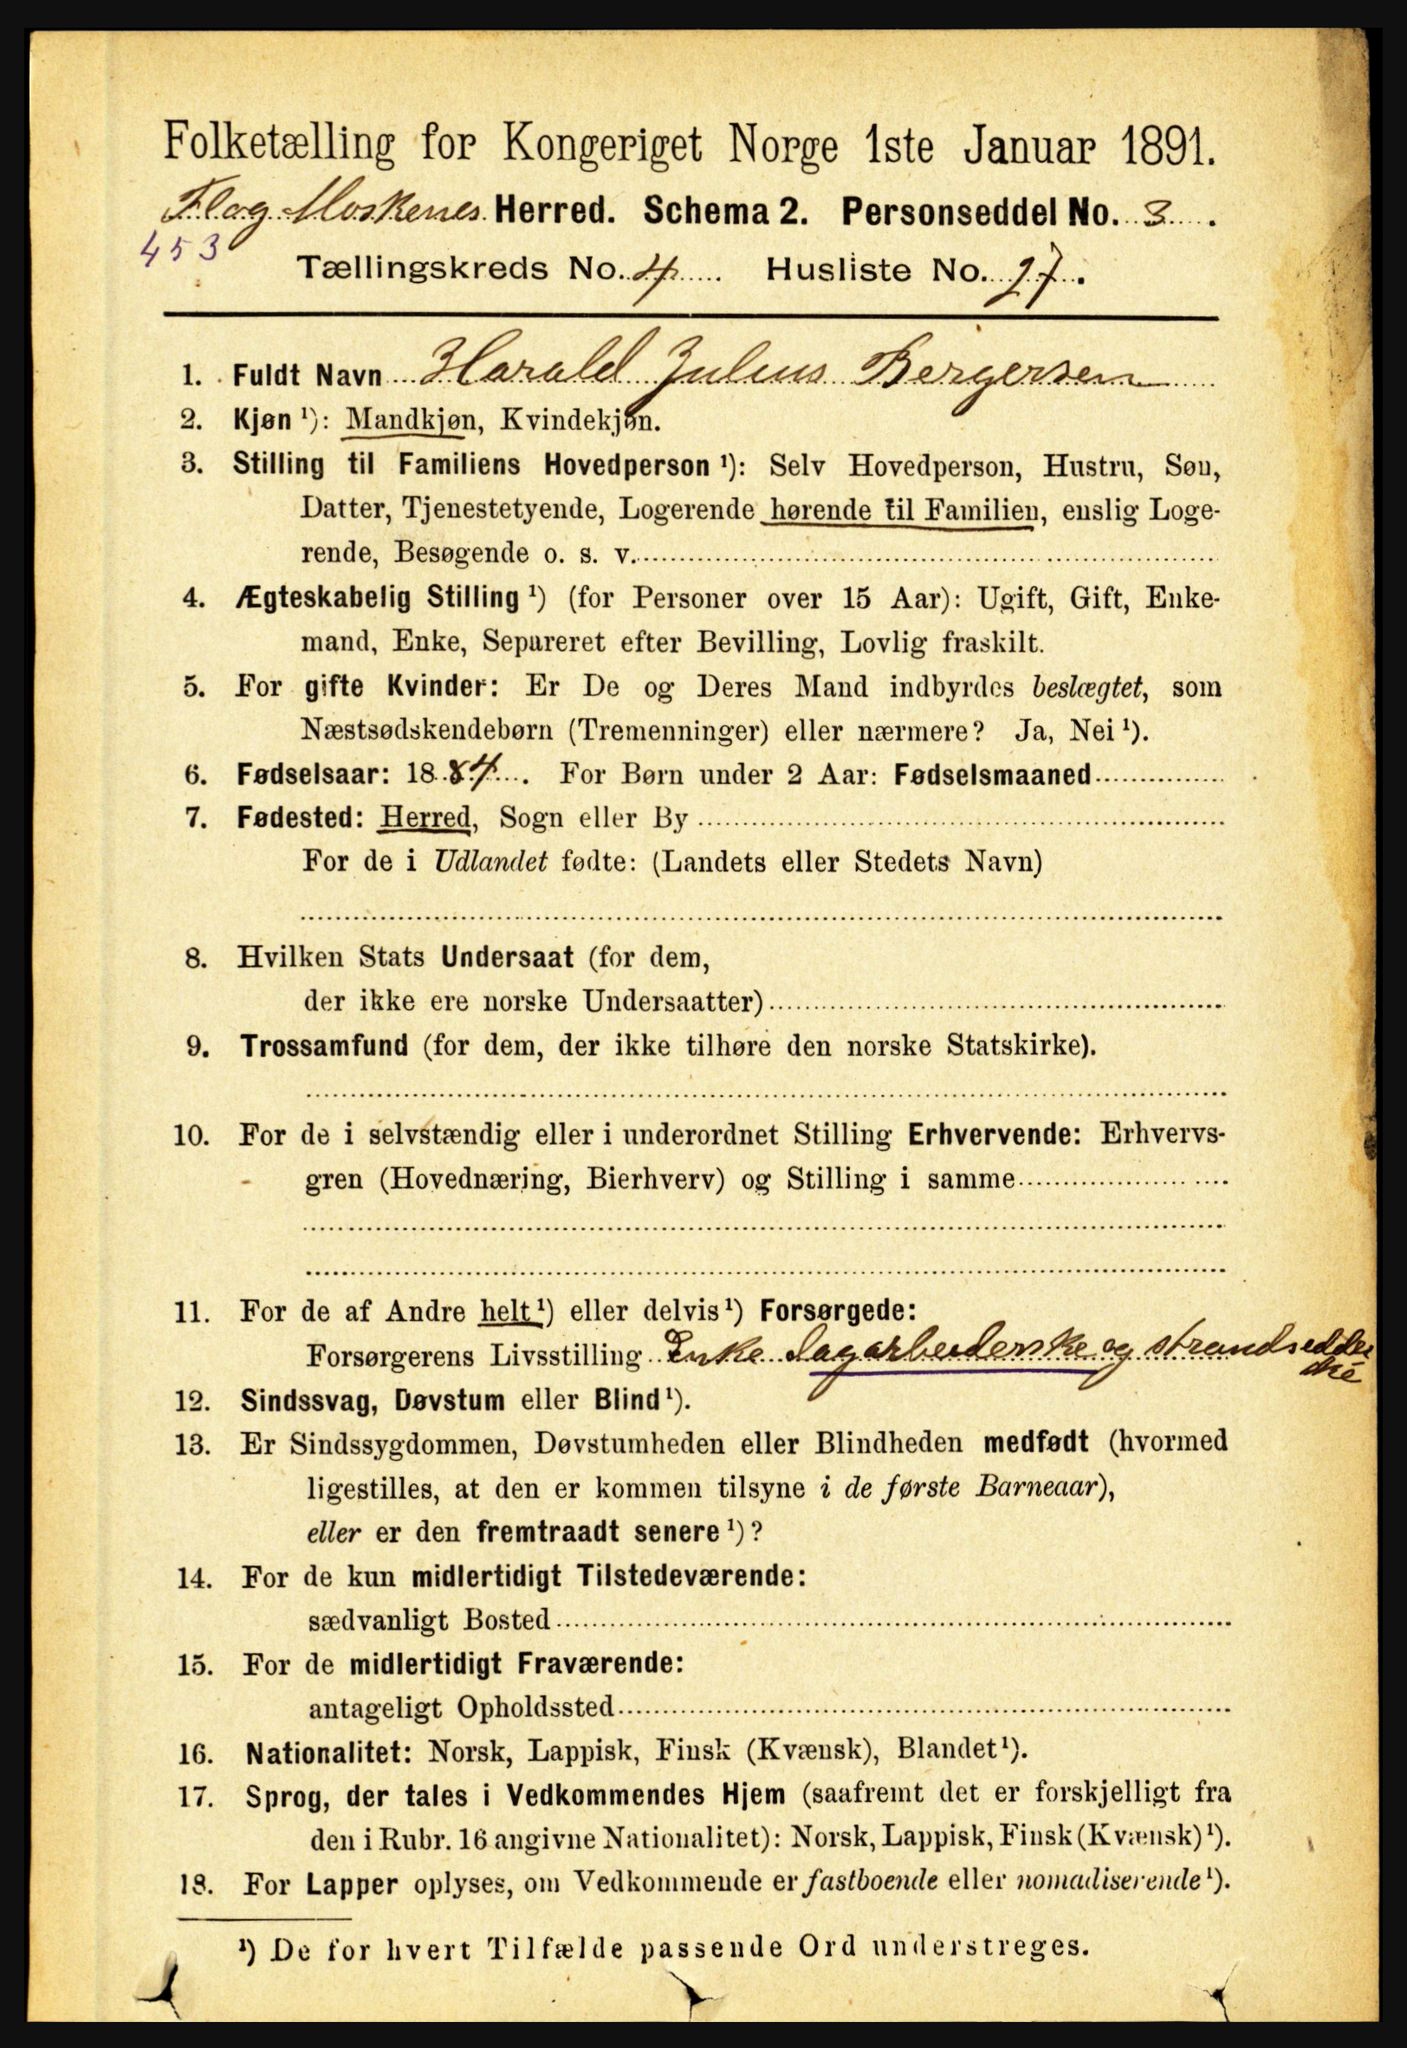 Folketælling for Kongeriget Norge 1ste Januar 1891.
Flag Moskenes Herred. Schema 2. Personseddel No. 3.
453
Tællingskreds No. 4 Husliste No. 27.
1. Fuldt Navn Harald Julius Bergersen
2. Kjøn ¹): Mandkjøn, Kvindekjøn.
3. Stilling til Familiens Hovedperson ¹): Selv Hovedperson, Hustru, Søn,
Datter, Tjenestetyende, Logerende hørende til Familien, enslig Loge-
rende, Besøgende o. s. v.
4. Ægteskabelig Stilling ¹) (for Personer over 15 Aar): Ugift, Gift, Enke-
mand, Enke, Separeret efter Bevilling, Lovlig fraskilt.
5. For gifte Kvinder: Er De og Deres Mand indbyrdes beslægtet, som
Næstsødskendebørn (Tremenninger) eller nærmere? Ja, Nei ¹).
6. Fødselsaar: 1884. For Børn under 2 Aar: Fødselsmaaned
7. Fødested: Herred, Sogn eller By
For de i Udlandet fødte: (Landets eller Stedets Navn)
8. Hvilken Stats Undersaat (for dem,
der ikke ere norske Undersaatter)
9. Trossamfund (for dem, der ikke tilhøre den norske Statskirke).
10. For de i selvstændig eller i underordnet Stilling Erhvervende: Erhvervs-
gren (Hovednæring, Bierhverv) og Stilling i samme
11. For de af Andre helt ¹) eller delvis ¹) Forsørgede:
Forsørgerens Livsstilling Enke dagarbeiderske og strandsidder
ske
12. Sindssvag, Døvstum eller Blind ¹).
13. Er Sindssygdommen, Døvstumheden eller Blindheden medfødt (hvormed
ligestilles, at den er kommen tilsyne i de første Barneaar),
eller er den fremtraadt senere ¹)?
14. For de kun midlertidigt Tilstedeværende:
sædvanligt Bosted
15. For de midlertidigt Fraværende:
antageligt Opholdssted
16. Nationalitet: Norsk, Lappisk, Finsk (Kvænsk), Blandet ¹).
17. Sprog, der tales i Vedkommendes Hjem (saafremt det er forskjelligt fra
den i Rubr. 16 angivne Nationalitet): Norsk, Lappisk, Finsk (Kvænsk) ¹).
18. For Lapper oplyses, om Vedkommende er fastboende eller nomadiserende ¹).
¹) De for hvert Tilfælde passende Ord understreges.